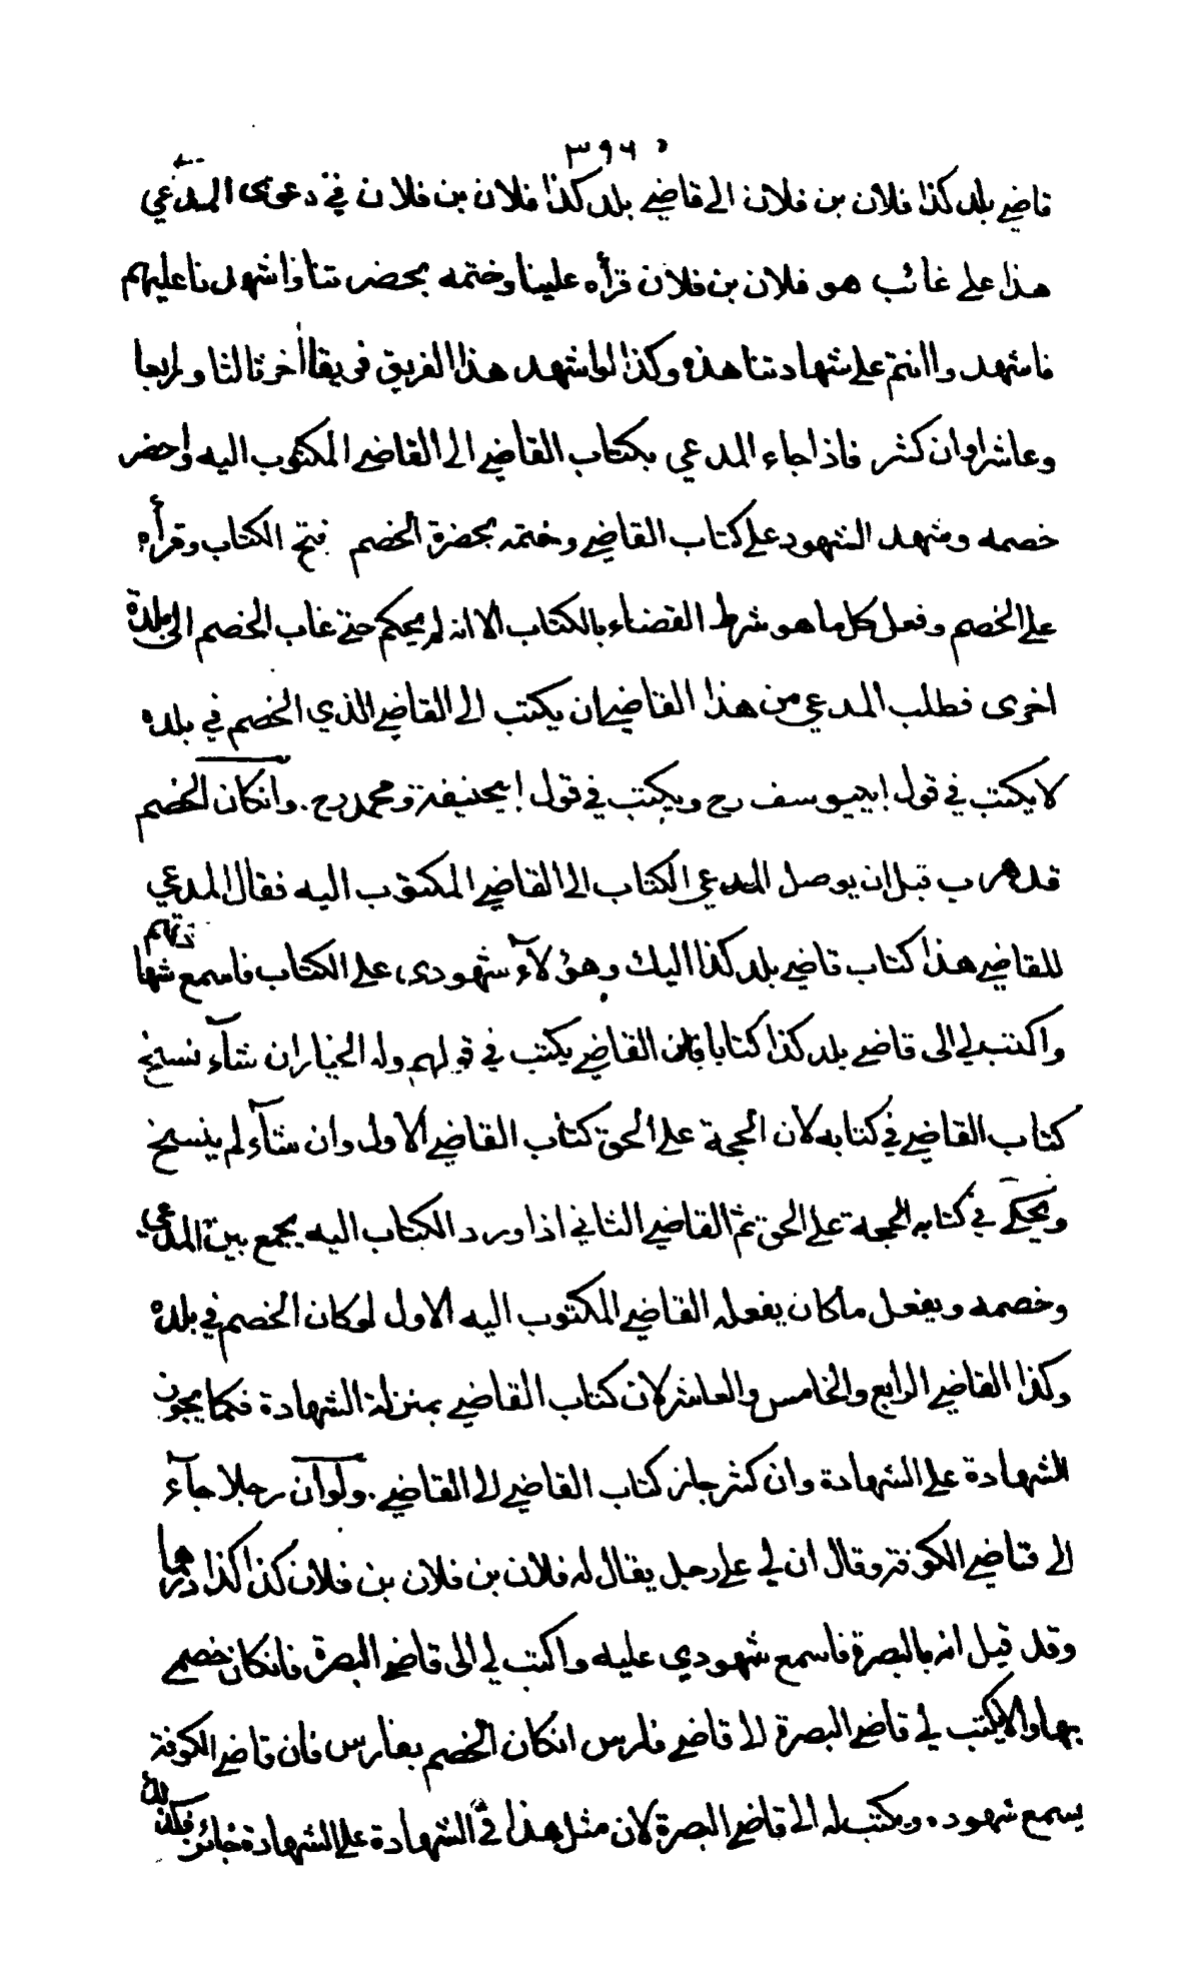 ٣٩٦
قاضي بلد كذا فلان بن فلان الى قاضي بلد كذا فلان بن فلان في دعوى المدعي
هذا على غائب هو فلان بن فلان قرأه علينا وختمه بحضرتنا واشهدنا عليهم
فاشهدوا انتم على شهادتنا هذه وكذا لو اشهد هذا الفريق فريقا اخر ثالثا ورابعا
وعاشرا وان كثر فاذا جاء المدعي بكتاب القاضي الى القاضي المكتوب اليه واحضر
خصمه وشهد الشهود على كتاب القاضي وختمه بحضرة الخصم فتح الكتاب وقرأه
على الخصم وفعل كل ما هو شرط القضاء بالكتاب الا انه لم يحكم حتى غاب الخصم الى بلدة
اخرى فطلب المدعي من هذا القاضي ان يكتب الى القاضي الذي الخصم في بلده
لا يكتب في قول ابييوسف رح ويكتب في قول ابيحنيفة ومحمد رح. وانكان الخصم
قد هرب قبل ان يوصل المدعي الكتاب الى القاضي المكتوب اليه فقال المدعي
للقاضي هذا كتاب قاضي بلد كذا اليك وهؤلآء شهودي على الكتاب فاسمع شهادتهم
واكتب لي الى قاضي بلد كذا كتابا فان القاضي يكتب في قولهم وله الخيار ان شآء نسخ
كتاب القاضي في كتابه لان الحجة على الحق كتاب القاضي الاول وان شآء لم ينسخ
ويحكي في كتابه الحجة على الحق ثم القاضي الثاني اذا ورد الكتاب اليه يجمع بين المدعي
وخصمه ويفعل ما كان يفعله القاضي المكتوب اليه الاول لو كان الخصم في بلده
وكذا القاضي الرابع والخامس والعاشر لان كتاب القاضي بمنزلة الشهادة فكما يجوز
الشهادة على الشهادة وان كثر جاز كتاب القاضي الى القاضي. ولو ان رجلا جآء
الى قاضي الكوفة وقال ان لي على رجل يقال له فلان بن فلان بن فلان كذا كذا درهما
وقد قيل انه بالبصرة فاسمع شهودي عليه واكتب لي الى قاضي البصرة فانكان خصمي
بها والا يكتب لي قاضي البصرة الى قاضي فارس انكان الخصم بفارس فان قاضي الكوفة
يسمع شهوده ويكتب له الى قاضي البصرة لان مثل هذا في الشهادة على الشهادة جائز فكذلك